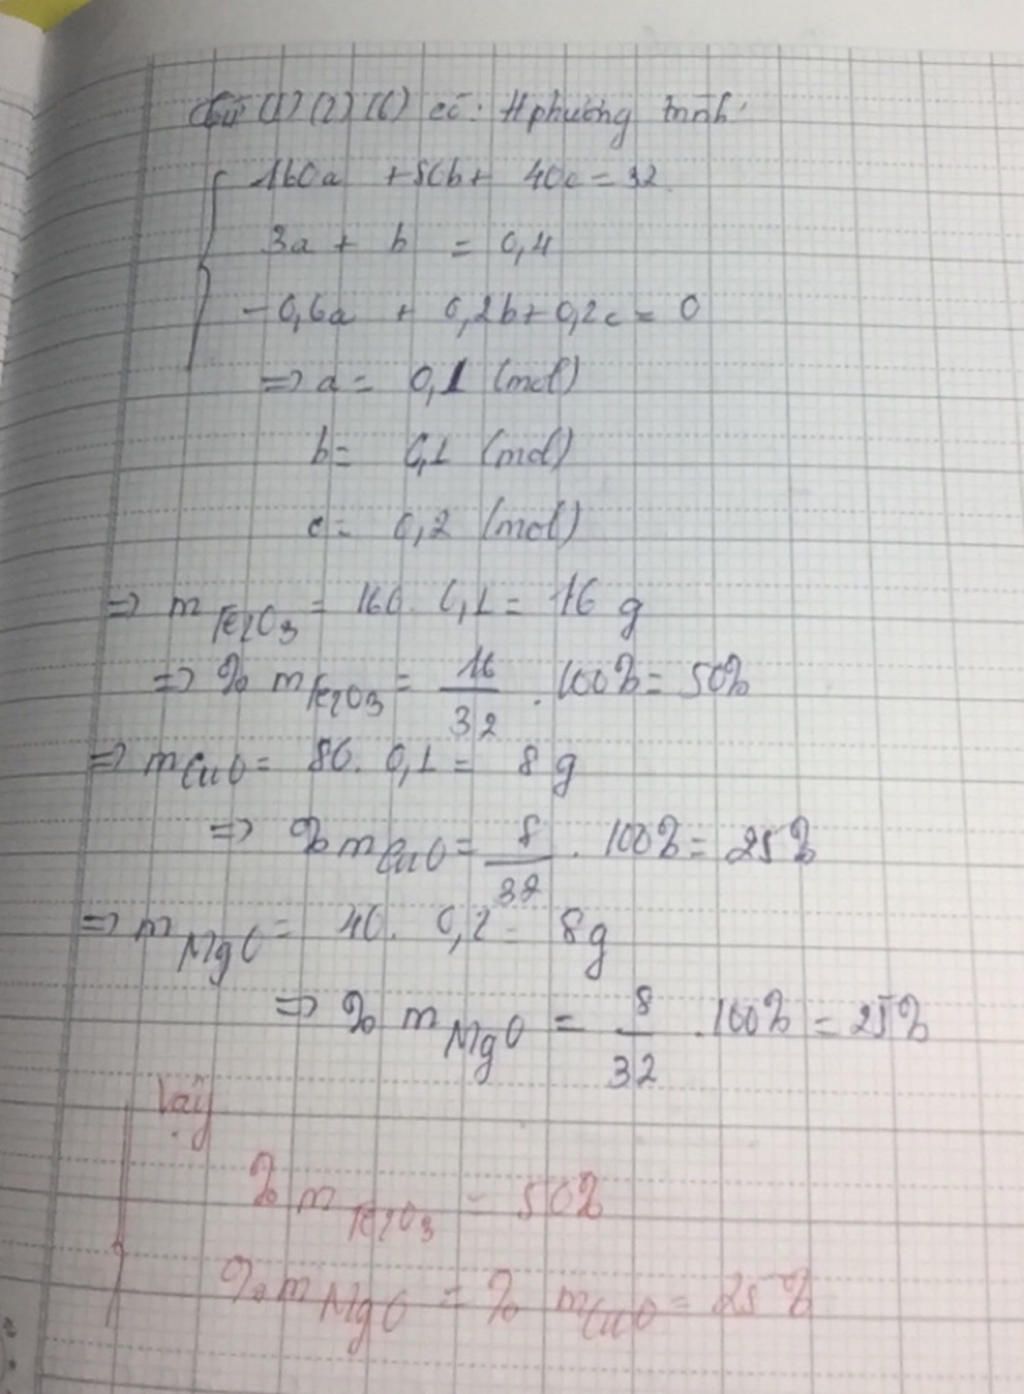 Từ (1) (2) (6) có: Hphương trình
160a + 80b + 40c = 32
3a + b = 0,4
-0,6a + 0,2b + 0,2c = 0
=> a = 0,1 (mol)
b = 0,1 (mol)
c = 0,2 (mol)
=> m Fe2O3 = 160. 0,1 = 16 g
=> % m Fe2O3 = 16/32 . 100% = 50%
=> m CuO = 80. 0,1 = 8 g
=> % m CuO = 8/32 . 100% = 25%
=> m MgO = 40. 0,2 = 8g
=> % m MgO = 8/32 .100% = 25%
Vậy
% m Fe2O3 = 50%
% m MgO = % m CuO = 25%